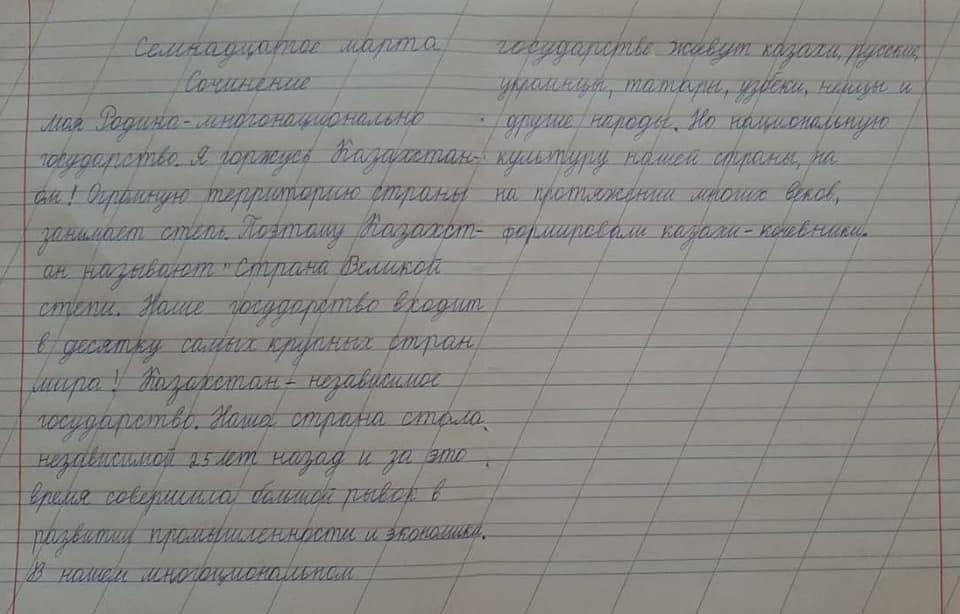 Семнадцатое марта
Сочинение
моя Родина-многонационально
государство. Я горжусь Казахстан-
ом! Огромную территорию страны
занимает степь. Поэтому Казахст-
ан называют "Страна Великой
степи. Наше государство входит
в десятку самых крупных стран
мира! Казахстан - независимое
государство. Наша страна стала
независимой 25 лет назад и за это
время совершила большой рывок в
развитии промышленности и экономики.
В нашем многоциональном
государстве живут казахи, русские,
украинцы, татары, узбеки, немцы и
другие народы. Но национальную
культуру нашей страны, на
на протяжении многих веков,
формировали казахи-кочевники.